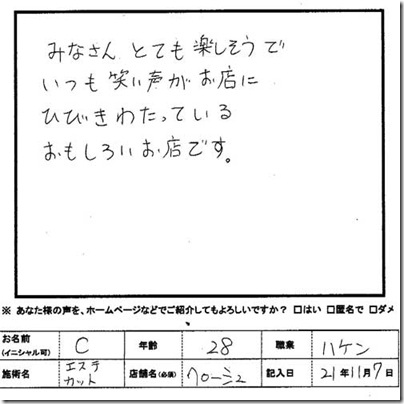 みなさん とても楽しそうで
いつも笑い声がお店に
ひびきわたっている
おもしろいお店です。
※ あなた様の声を、ホームページなどでご紹介してもよろしいですか? □はい □匿名で □ダメ
お名前 (イニシャル可) C 年齢 28 職業 ハケン
施術名 エステ カット 店舗名(必須) クローシュ 記入日 21年11月7日